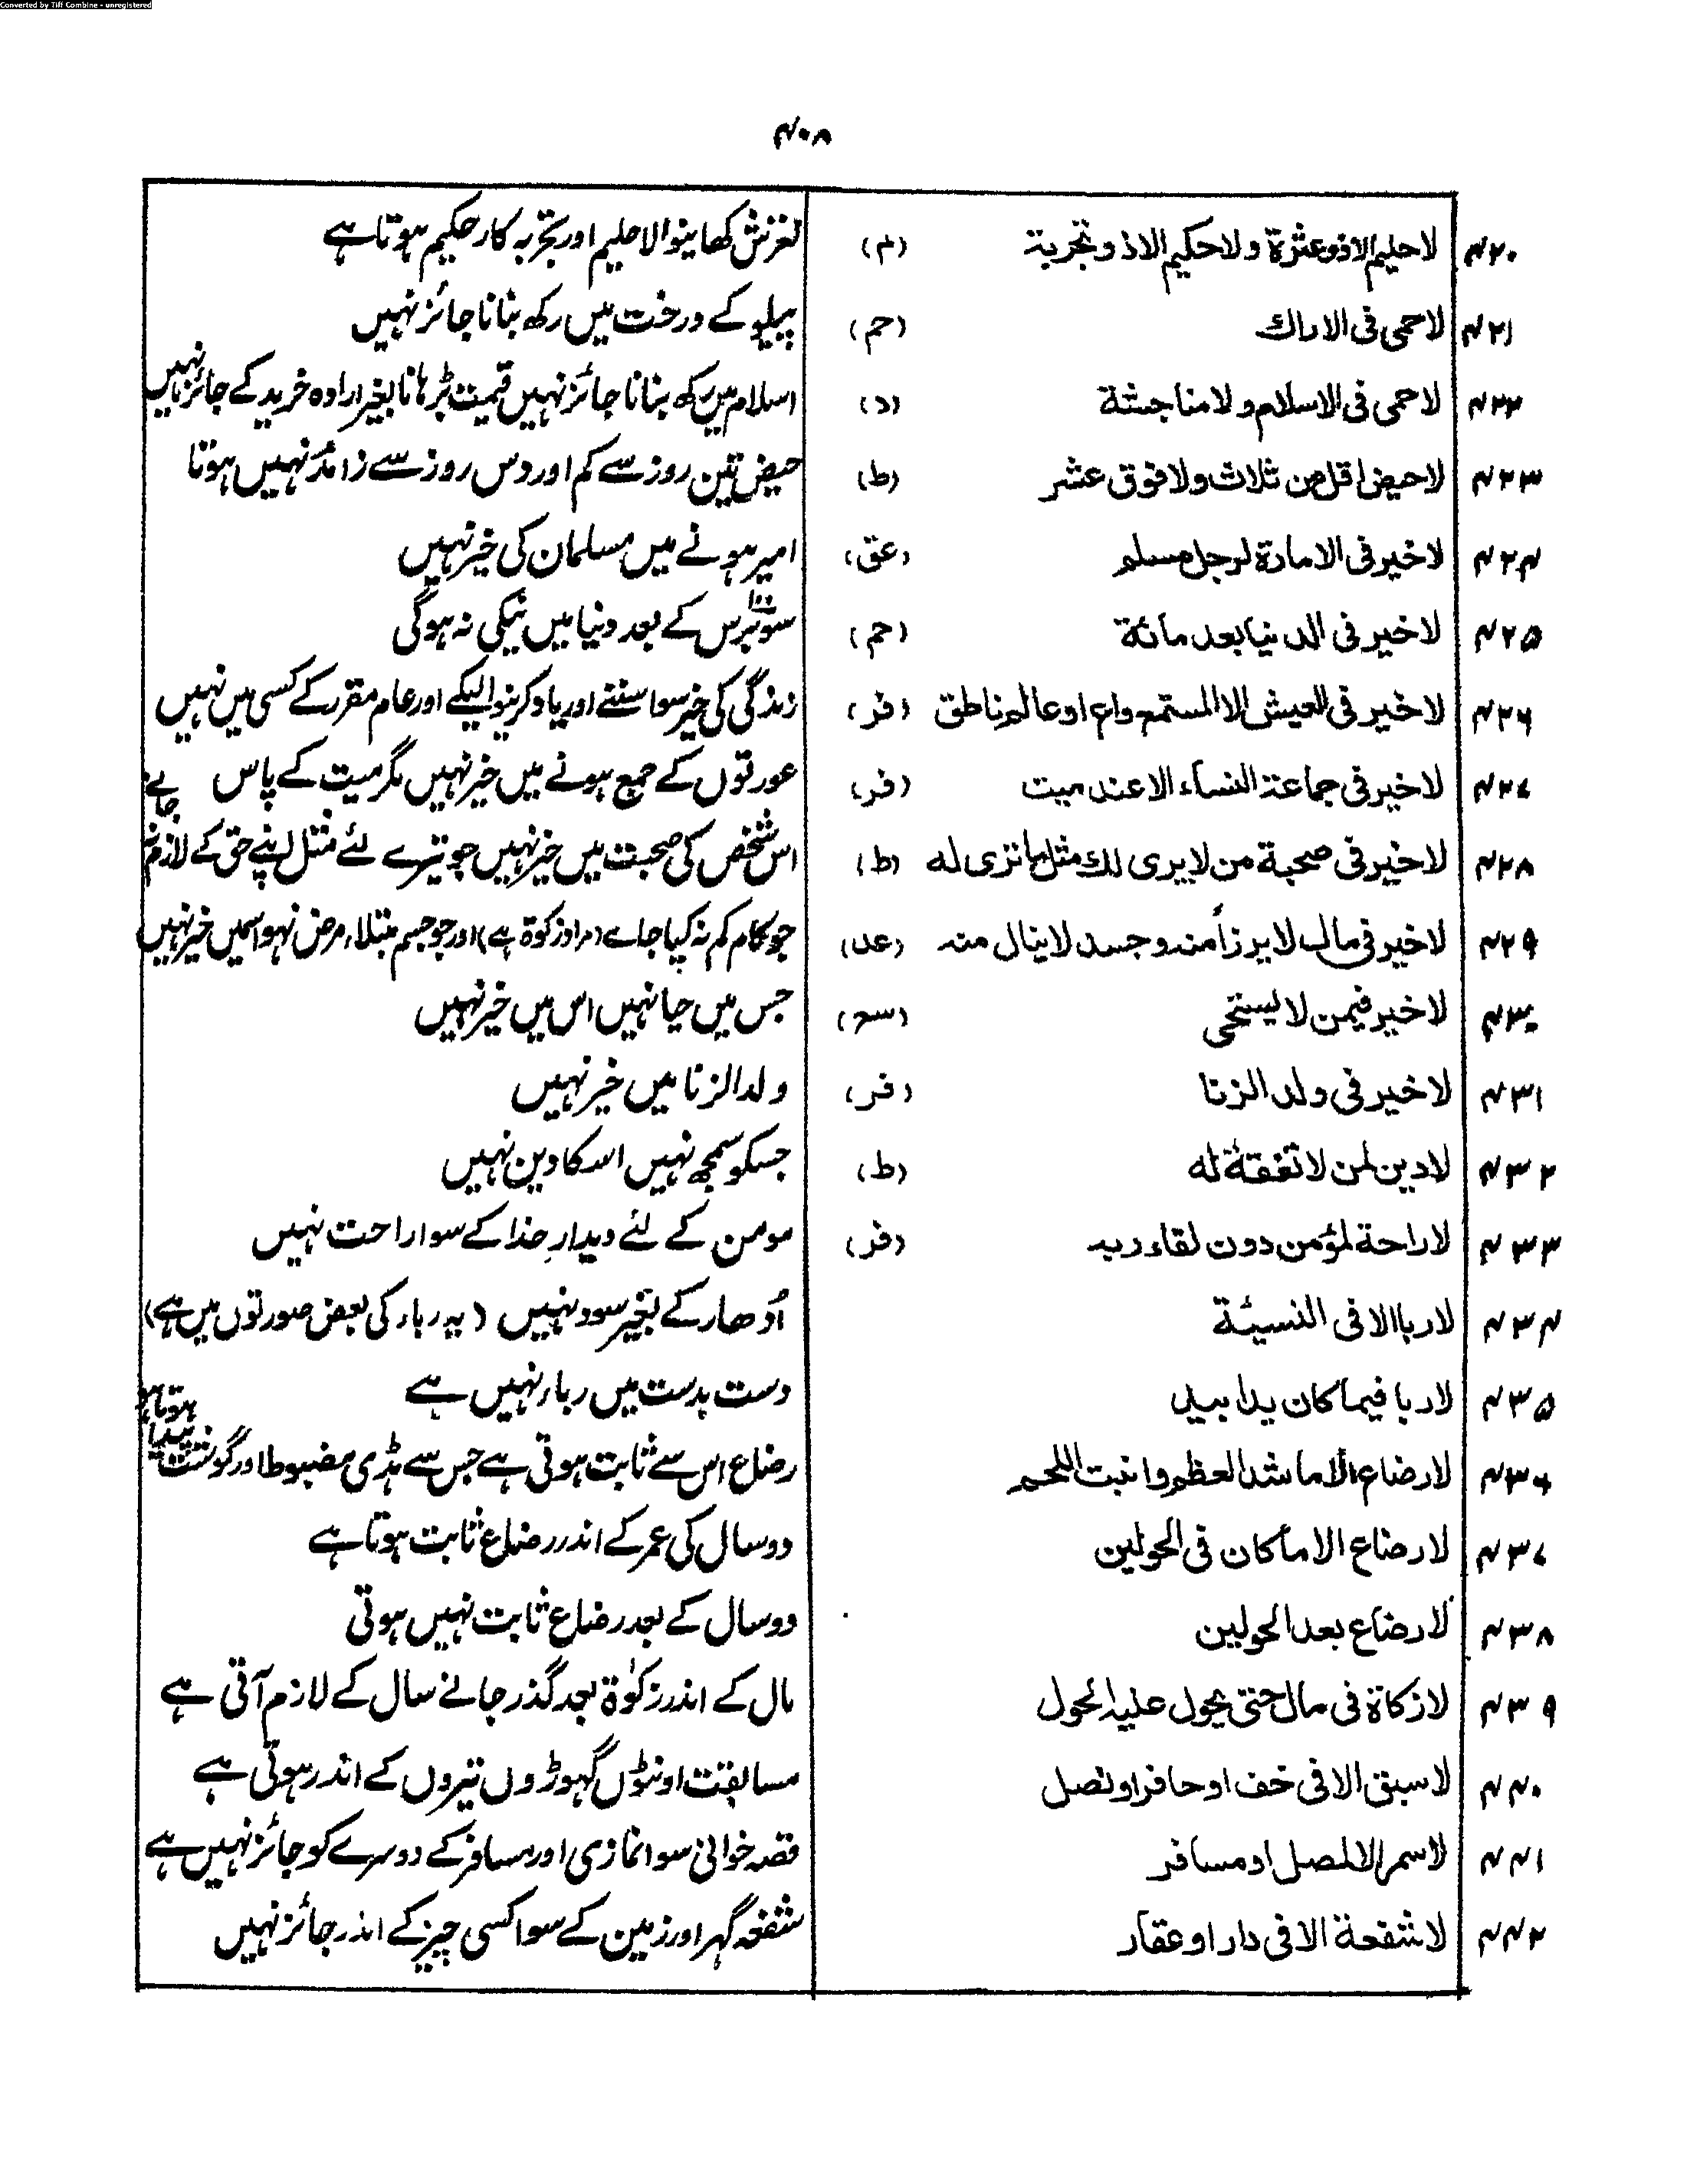 Converted by Tiff Combine - unregistered
۴۰۸
۴۲۰ لا حلیم الا ذو عثرة ولا حکیم الا ذو تجربة (م) لغزش کھاینوالا حلیم اور تجربہ کار حکیم ہوتا ہے
۴۲۱ لا حمی فی الاراك (حم) پیلو کے درخت میں رکھ بنانا جائز نہیں
۴۲۲ لا حمی فی الاسلام ولا مناجشة (د) اسلام میں رکھ بنانا جائز نہیں قیمت بڑہانا بغیر ارادہ خرید کے جائز نہیں
۴۲۳ لا حیض اقل من ثلاث ولا فوق عشر (ط) حیض تین روز سے کم اور دس روز سے زائد نہیں ہوتا
۴۲۴ لا خیر فی الامارة لرجل مسلم (عق) امیر ہونے میں مسلمان کی خیر نہیں
۴۲۵ لا خیر فی الدنیا بعد مائة (حم) سو ۱۰۰ برس کے بعد دنیا میں نیکی نہ ہوگی
۴۲۶ لا خیر فی العیش الا لمستمع واع او عالم ناطق (فر) زندگی کی خیر سوا سننے اور یاد کرینوالیکے اور عام مقرر کے کسی میں نہیں
۴۲۷ لا خیر فی جماعة النساء الا عند میت (فر) عورتوں کے جمع ہونے میں خیر نہیں مگر میت کے پاس
۴۲۸ لا خیر فی صحبة من لا یری لك مثل ما تری له (ط) اس شخص کی صحبت میں خیر نہیں جو تیرے لئے مثل اپنے حق کے لازم نہ جانے
۴۲۹ لا خیر فی مال لا یرزأ منه وجسد لا ینال منه (عد) جو کام کم نہ کیا جاے (مراد زکوة ہے) اور جو جسم مبتلاء مرض نہو اسمیں خیر نہیں
۴۳۰ لا خیر فیمن لا یستحی (سم) جس میں حیا نہیں اس میں خیر نہیں
۴۳۱ لا خیر فی ولد الزنا (فر) ولد الزنا میں خیر نہیں
۴۳۲ لا دین لمن لا تفقة له (ط) جسکو سمجھ نہیں اسکا دین نہیں
۴۳۳ لا راحة لمؤمن دون لقاء ربه (فر) مومن کے لئے دیدارِ خدا کے سوا راحت نہیں
۴۳۴ لا ربا الا فی النسیئة اُدھار کے بغیر سود نہیں (یہ رباء کی بعض صورتوں میں ہے)
۴۳۵ لا ربا فیما کان یدا بید دست بدست میں رباء نہیں ہے
۴۳۶ لا رضاع الا ما شد العظم وانبت اللحم رضاع اس سے ثابت ہوتی ہے جس سے ہڈی مضبوط اور گوشت پیدا ہوتا ہو
۴۳۷ لا رضاع الا ما کان فی الحولین دو سال کی عمر کے اندر رضاع ثابت ہوتا ہے
۴۳۸ لا رضاع بعد الحولین دو سال کے بعد رضاع ثابت نہیں ہوتی
۴۳۹ لا زکاة فی مال حتی یحول علیه الحول مال کے اندر زکوٰة بعد گذر جانے سال کے لازم آتی ہے
۴۴۰ لا سبق الا فی خف او حافر او نصل مسابقت اونٹوں گہوڑوں تیروں کے اندر ہوتی ہے
۴۴۱ لا سمر الا لمصل او مسافر قصہ خوانی سوا نمازی اور مسافر کے دوسرے کو جائز نہیں ہے
۴۴۲ لا شفعة الا فی دار او عقار شفعہ گہر اور زمین کے سوا کسی چیز کے اندر جائز نہیں